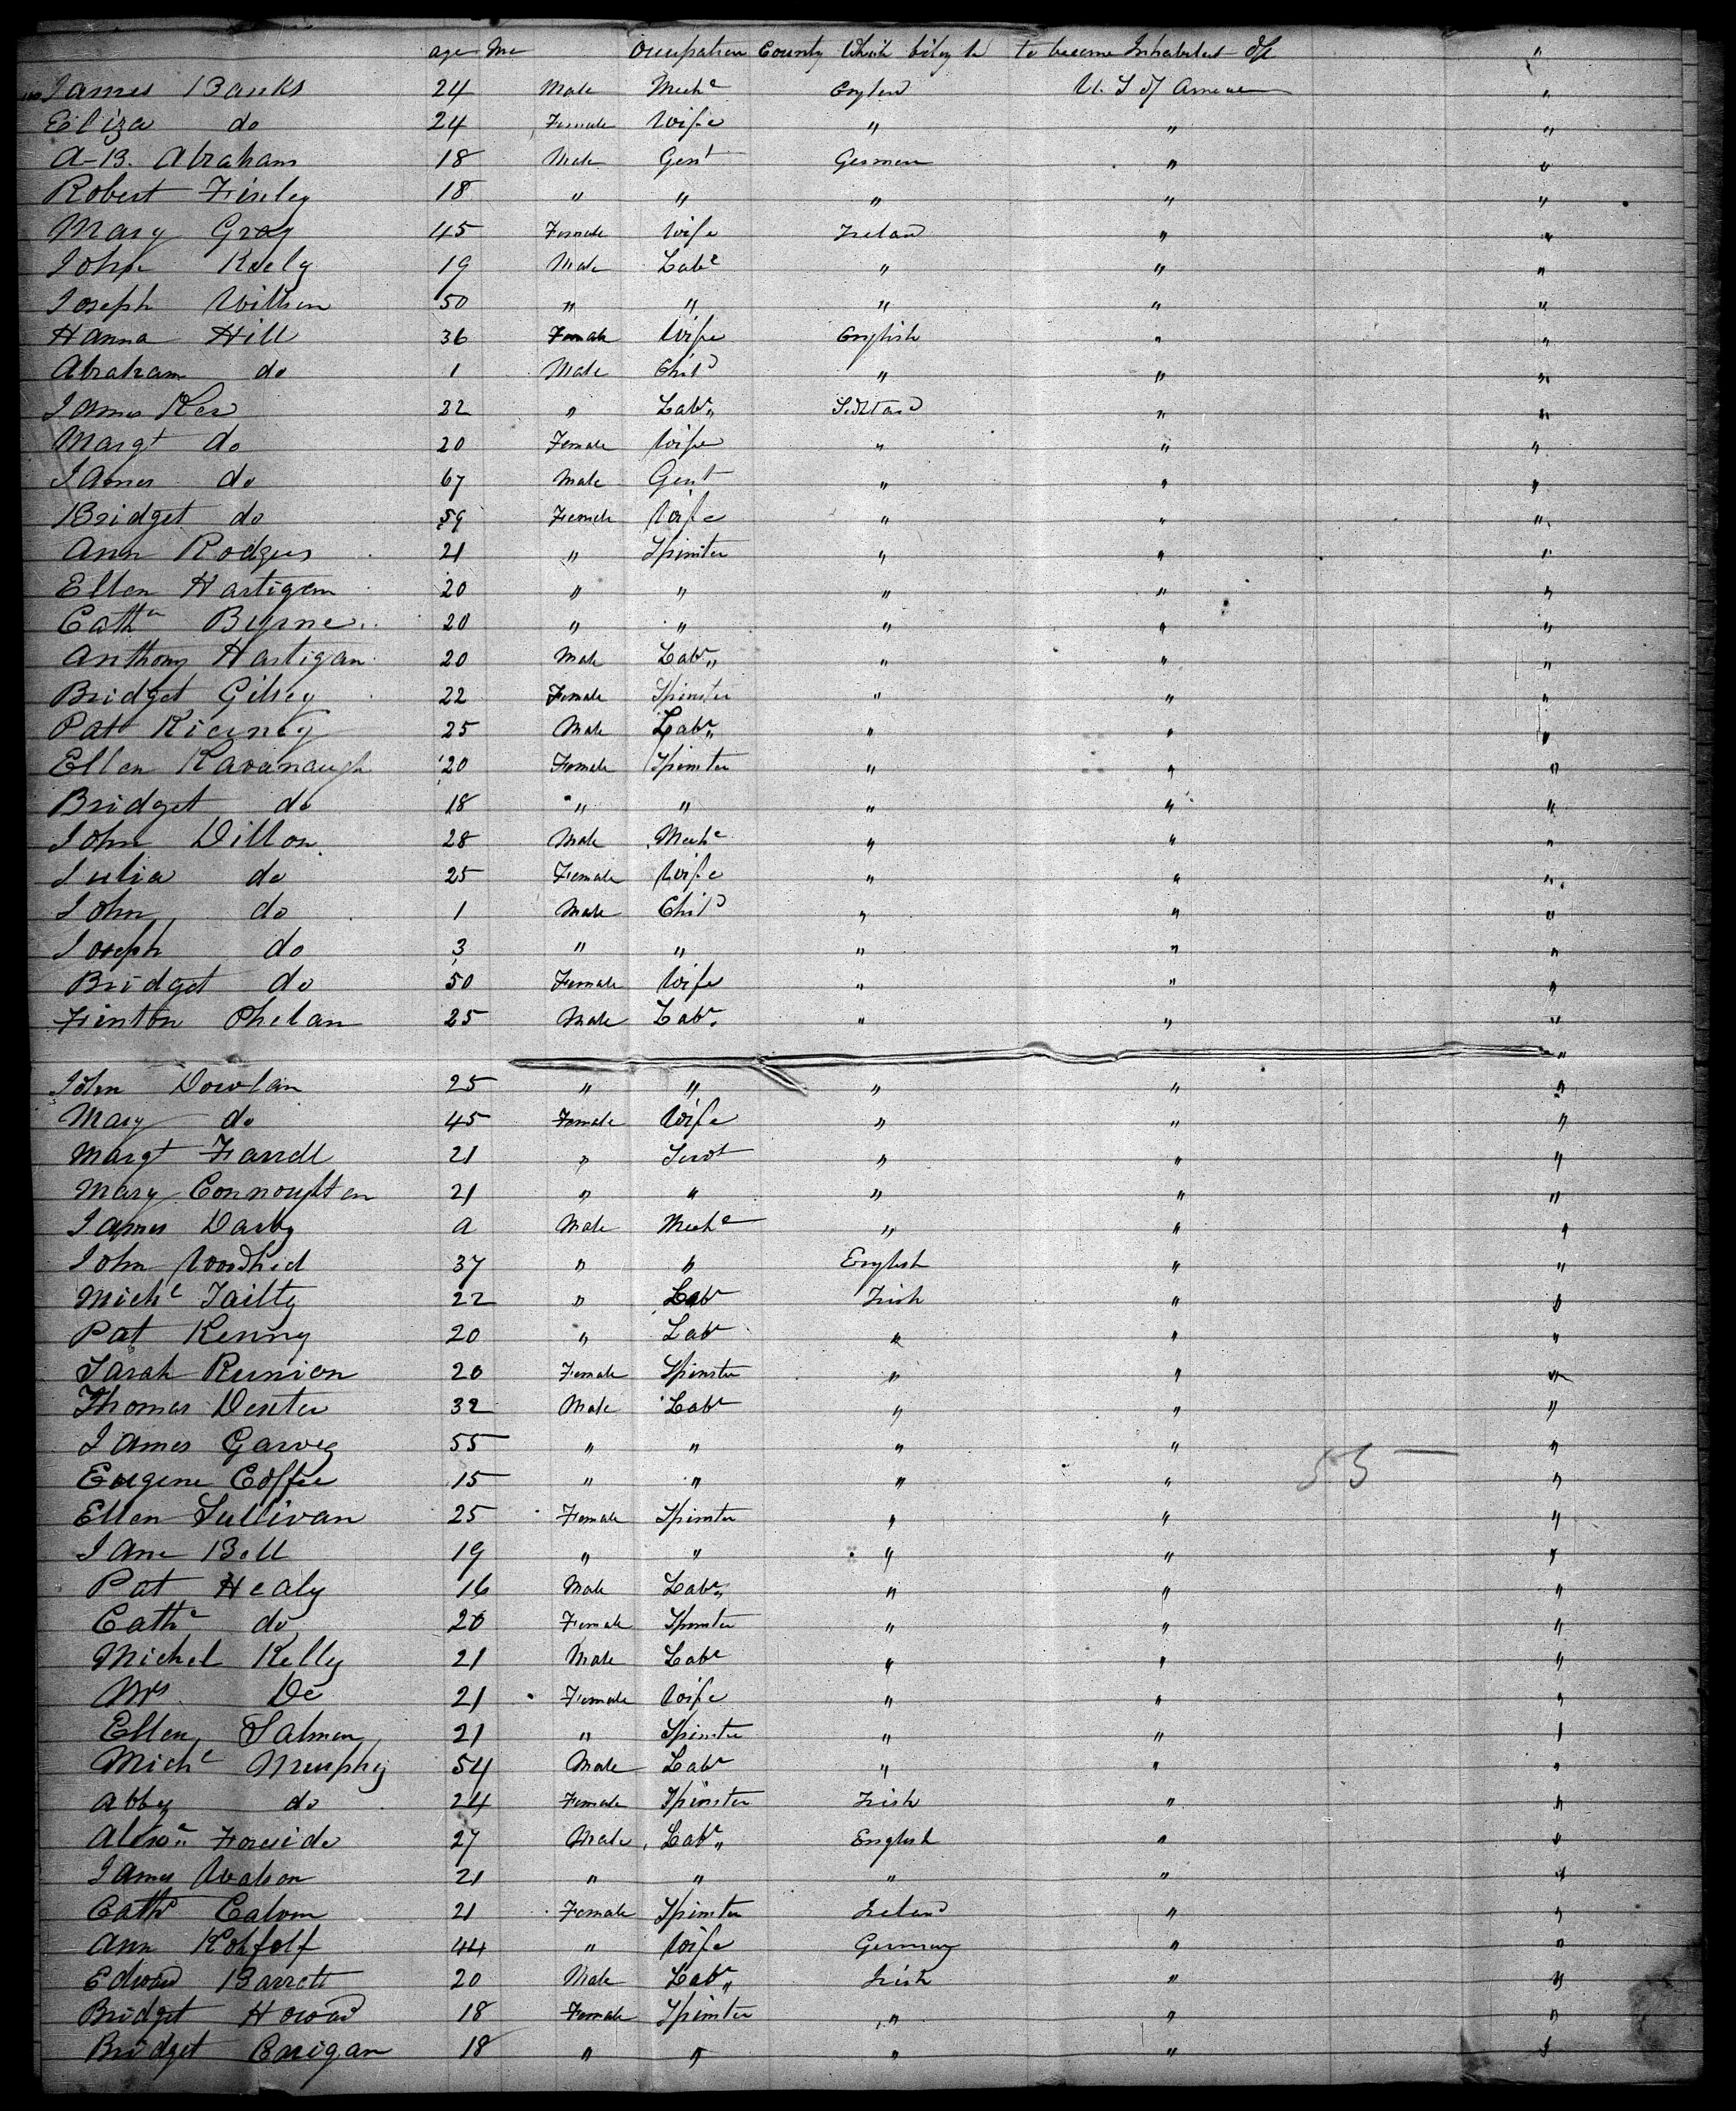 age Mo Occupation County Which belong to to become Inhabitant of "
James Banks 24 Male Mechc England U. S of America "
Eliza do 24 Female Wife " " "
A-B. Abraham 18 Male Gent German " "
Robert Finley 18 " " " " "
Mary Gray 45 Female Wife Ireland " "
John Keely 19 Male Labr " " "
Joseph Willson 50 " " " " "
Hanna Hill 36 Female Wife English " "
Abraham do 1 Male Child " " "
James Ker 22 " Labr " "
Margt do 20 Female Wife " " "
James do 67 Male Gent " " "
Bridget do 59 Female Wife " " "
Ann Rodgers 21 " Spinster " " "
Ellen Hartigan 20 " " " " "
Cathn Byrne 20 " " " " "
Anthony Hartigan 20 Male Labr " " "
Bridget Gilsey 22 Female Spinster " " "
Pat Kierney 25 Male Labr " " "
Ellen Kavanaugh 20 Female Spinster " " "
Bridget do 18 " " " " "
John Dillon 28 Male Mechc " " "
Julia do 25 Female Wife " " "
John do 1 Male Child " " "
Joseph do 3 " " " " "
Bridget do 50 Female Wife " " "
Finton Phelan 25 Male Labr " " "
"
John Dowlan 25 " " " " "
Mary do 45 Female Wife " " "
Margt Farrell 21 " Servt " " "
Mary Connoughton 21 " " " " "
James Darby a Male Mechc " " "
John Woodhed 37 " " English " "
Michl Tailty 22 " Labr Irish " "
Pat Kenny 20 " Labr " " "
Sarah Runion 20 Female Spinster " " "
Thomas Dexter 32 Male Labr " " "
James Garvey 55 " " " " "
55
Eugene Coffee 15 " " " " "
Ellen Sullivan 25 Female Spinster " " "
Jane Bell 19 " " " " "
Pat Healy 16 Male Labr " " "
Cathe do 20 Female Spinster " " "
Michel Kelly 21 Male Labr " " "
Mrs Do 21 Female Wife " " "
Ellen Salmon 21 " Spinster " " "
Michl Murphy 54 Male Labr " " "
Abby do 24 Female Spinster Irish " "
27 Male Labr English " "
James Watson 21 " " " " "
Cath 21 Female Spinster Ireland " "
Ann 44 " Wife Germany " "
Edward Barrett 20 Male Labr Irish " "
Bridget Howard 18 Female Spinster " " "
Bridget Corrigan 18 " " " " "